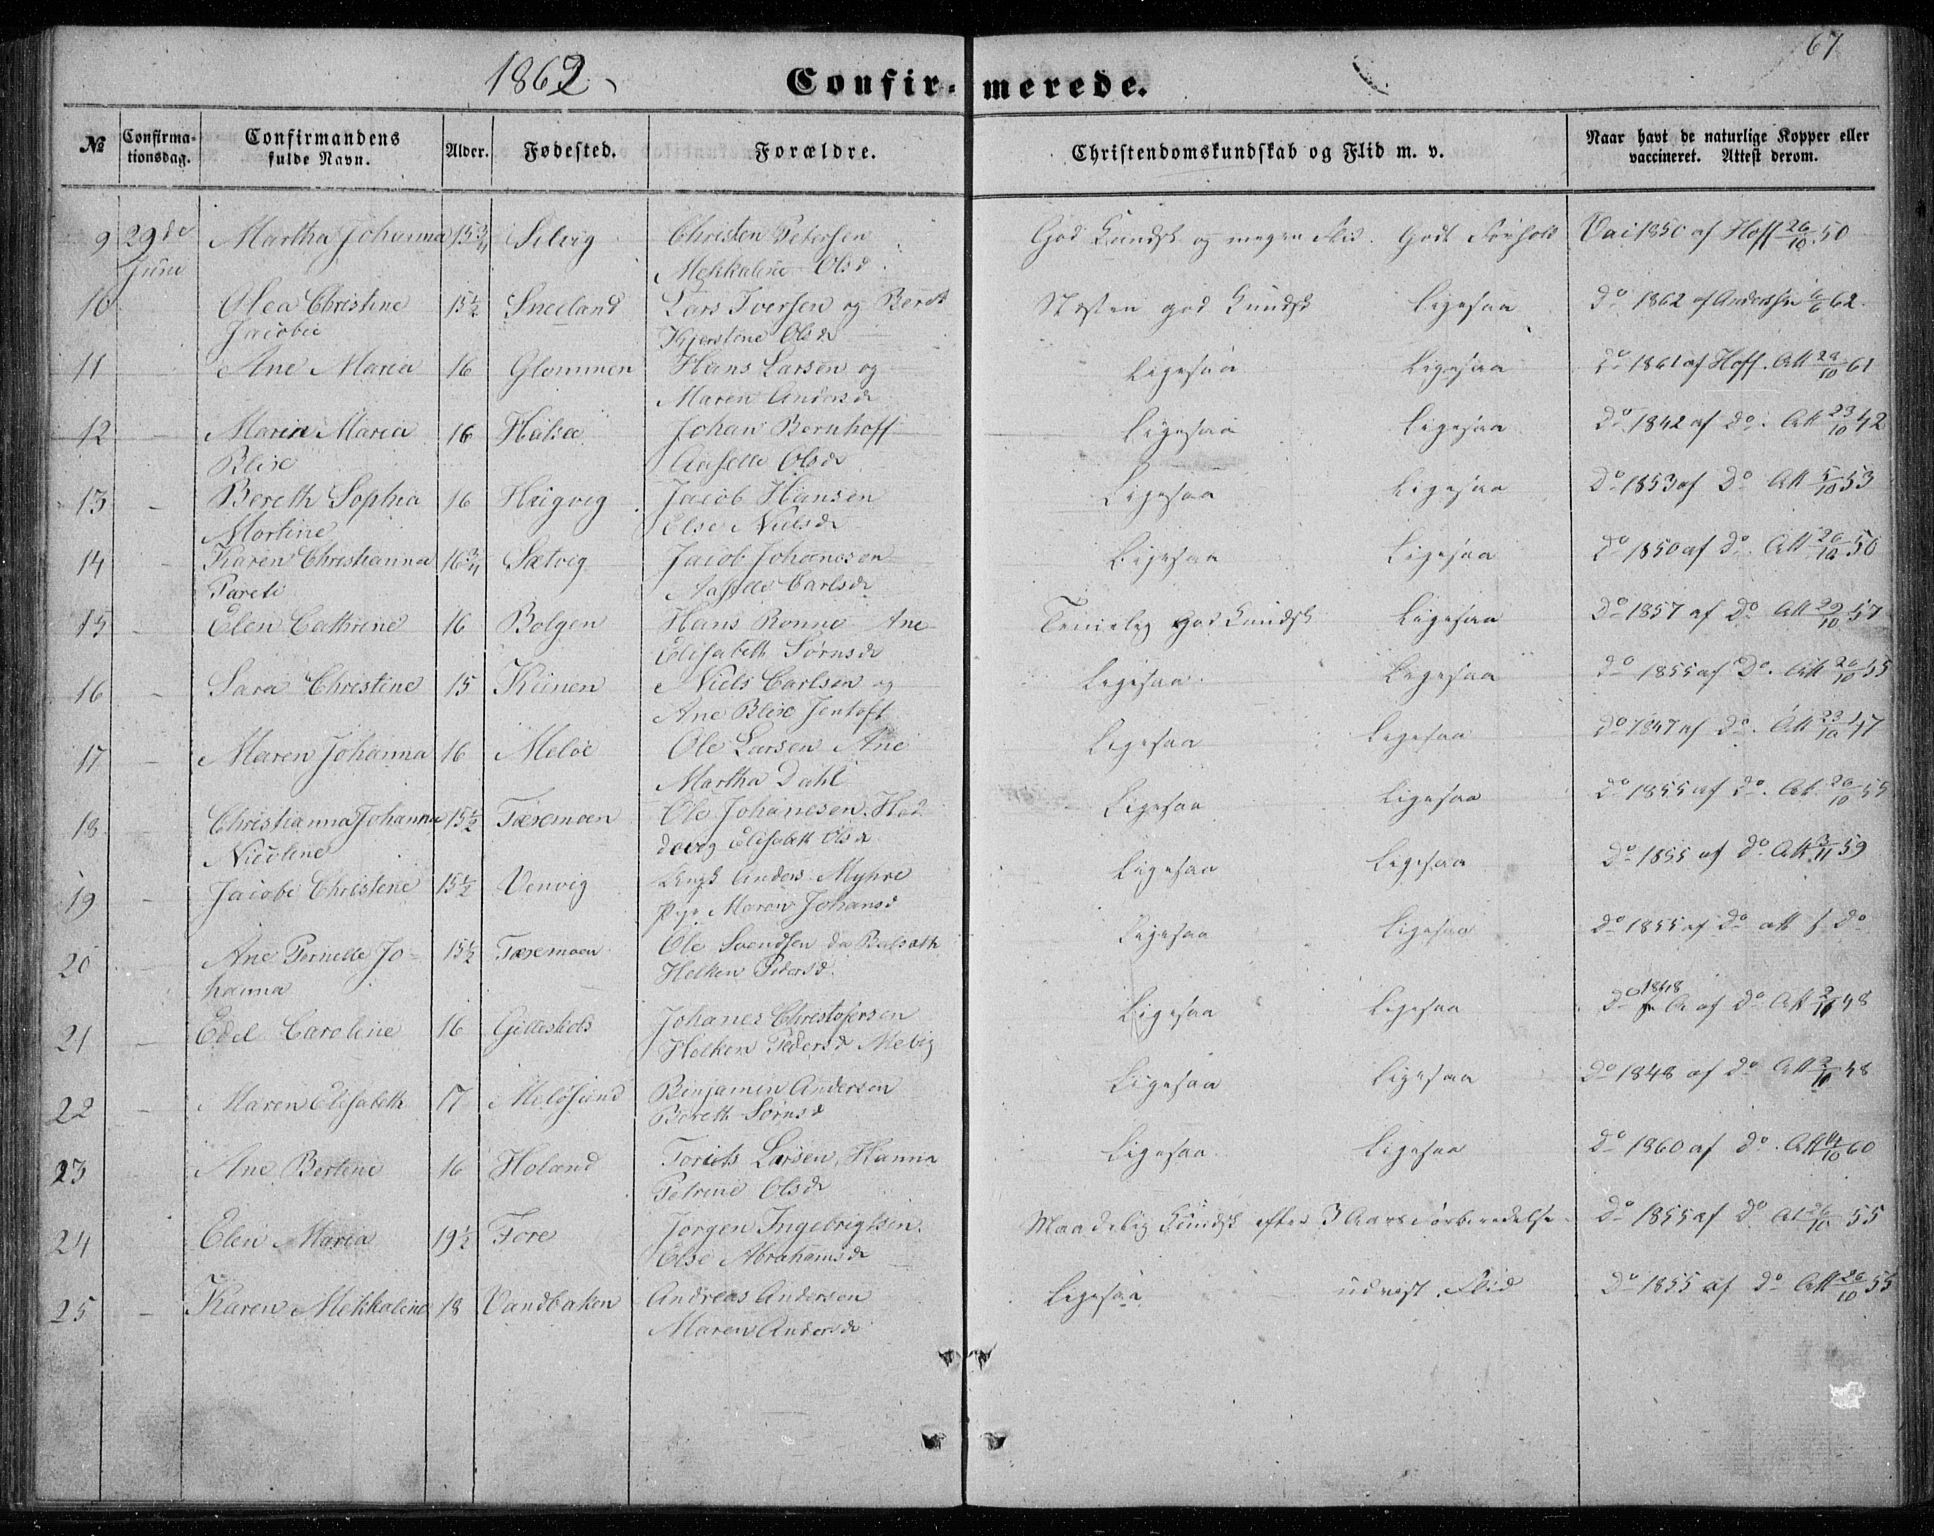 1862
67
Confir- merede.
№ Confirma-tionsdag. Confirmandens fulde Navn. Alder. Fødested. Forældre. Christendomskundskab og Flid m. v. Naar havt de naturlige Kopper eller vaccineret. Attest derom.
9 29de Juni Martha Johanna 15 3/4 Selvig Christen Petersen God Kundsk og megen Flid. Godt Forhold Vac 1850 af Hoff 26/10 50
Mekkaline Olsd
10 Olea Christine 15½ Sneeland Lars Iversen og Beret Næsten god Kundsk Ligesaa Do 1862 af Anderssen 62
Jacobie Kjerstine Olsd
11 Ane Maria 16 Glommen Hans Larsen og Ligesaa Ligesaa Do 1861 af Hoff. Att 29/10 61
Maren Andersd
12 Maren Maria 16 Halsa Johan Bernhoff Ligesaa Ligesaa Do 1842 af Do. Att 23/10 42
Blix Olsd
13 - Bereth Sophia 16 Jacob Hansen Ligesaa Ligesaa Do 1853 af Do Att 5/10 53
Martine Else Nielsd
14 - Karen Christianna 16 3/4 Sætvig Jacob Johannesen Ligesaa Ligesaa Do 1850 af Do. Att 26/10 50
Carlsd
15 - Elen Cathrine 16 Bolgen Hans Rønne Ane Temelig god Kundsk Ligesaa Do 1857 af Do Att 29/10 57
Elisabeth Sørnsd
16 - Sara Christine 15 Kunen Niels Carlsen og Ligesaa Ligesaa Do 1855 af Do. Att 26/10 55
Ane Blix Jentoft
17 - Maren Johanna 16 Meløe Ole Larsen Ane Ligesaa Ligesaa Do 1847 af Do. Att 23/10 47
Martha Dahl
18 - Christianna Johanna 15½ Færemoen Ole Johanesen. Hed Ligesaa Ligesaa Do 1855 af Do. Att 26/10 55
Nicoline devig Elisabeth Olsd
19 - Jacobe Christine 15½ Venvig Ungk Anders Myhre Ligesaa Ligesaa Do 1855 af Do Att 59
Pige Maren Johansd
20 - Ane Pernelle Jo- 15½ Færemoen Ole Svendsen Ligesaa Ligesaa Do 1855 af Do att f Do
hanna Helken Pedersd
21 - Edel Caroline 16 Gilleskols Johanes Christofersen Ligesaa Ligesaa Do 1848 af Do Att 48
Helken Pedersd
22 - Maren Elisabeth 17 Meløsund Benjamin Andersen Ligesaa Ligesaa Do 1848 af Do Att 2/10 48
Bereth Sørnsd
23 - Ane Bertine 16 Holand Larsen, Hanna Ligesaa Ligesaa Do 1860 af Do. Att 60
Petrine Olsd
24 - Elen Maria 19½ Fore Jørgen Ingebrigtsen. Maadelig Kundsk efter 3 Aars Forberedelse. Do 1855 af Do At 26/10 55
Else Abrahamsd
25 - Karen Mekkaline 18 Vandbaken Andreas Andersen Ligesaa udvist Flid Do 1855 af Do Att 26/10 55
Maren Andersd